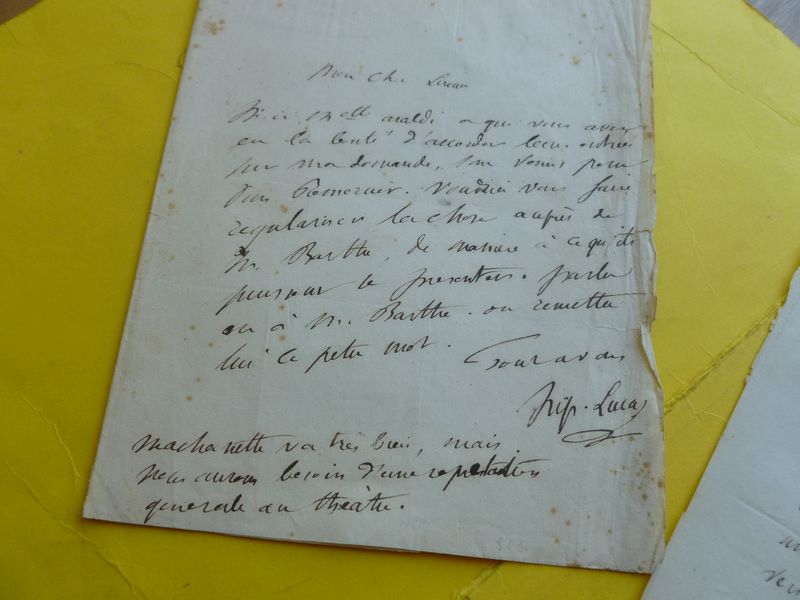 Mon cher Lireux
M. et Melle araldi a qui vous avez
eu la bonté d'accorder leurs entrées
sur ma demande, son venus pour
vous remercier. Voudriez vous faire
regulariser la chose auprès de
M. Barthe, de manière à ce qu'ils
puissent se presenter. parlez
en à M. Barthe. ou remettez
lui ce petit mot.
Tout a vous
Hip. Lucas
machanette va très bien, mais
nous aurons besoin d'une repetition
generale au théâtre.